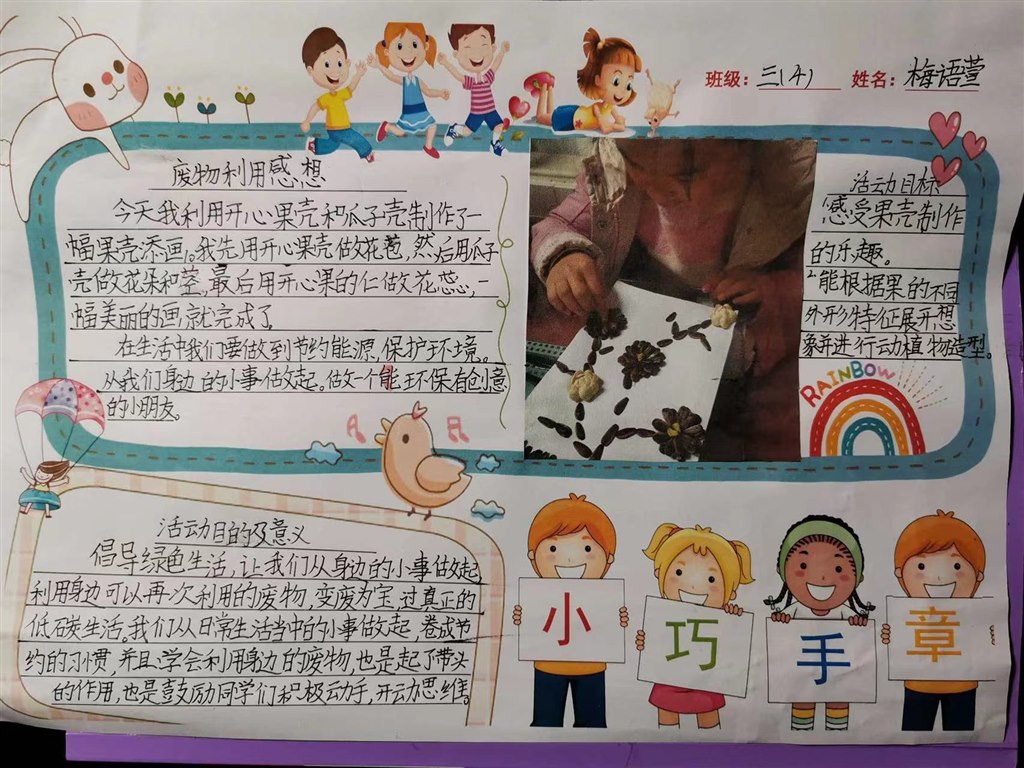 班级：三(4) 姓名：梅语萱
废物利用感想
今天我利用开心果壳和瓜子壳制作了一
幅果壳添画。我先用开心果壳做花苞，然后用瓜子
壳做花朵和茎，最后用开心果的仁做花蕊，一
幅美丽的画就完成了
在生活中我们要做到节约能源，保护环境。
从我们身边的小事做起。做一个能环保有创意
的小朋友。
活动目标
感受果壳制作
的乐趣。
能根据果的不同
外形特征展开想
象并进行动植物造型。
RAINBOW
活动目的及意义
倡导绿色生活，让我们从身边的小事做起
利用身边可以再次利用的废物，变废为宝，过真正的
低碳生活。我们从日常生活当中的小事做起，卷成节
约的习惯，并且学会利用身边的废物，也是起了带头
的作用，也是鼓励同学们积极动手，开动思维
小巧手章